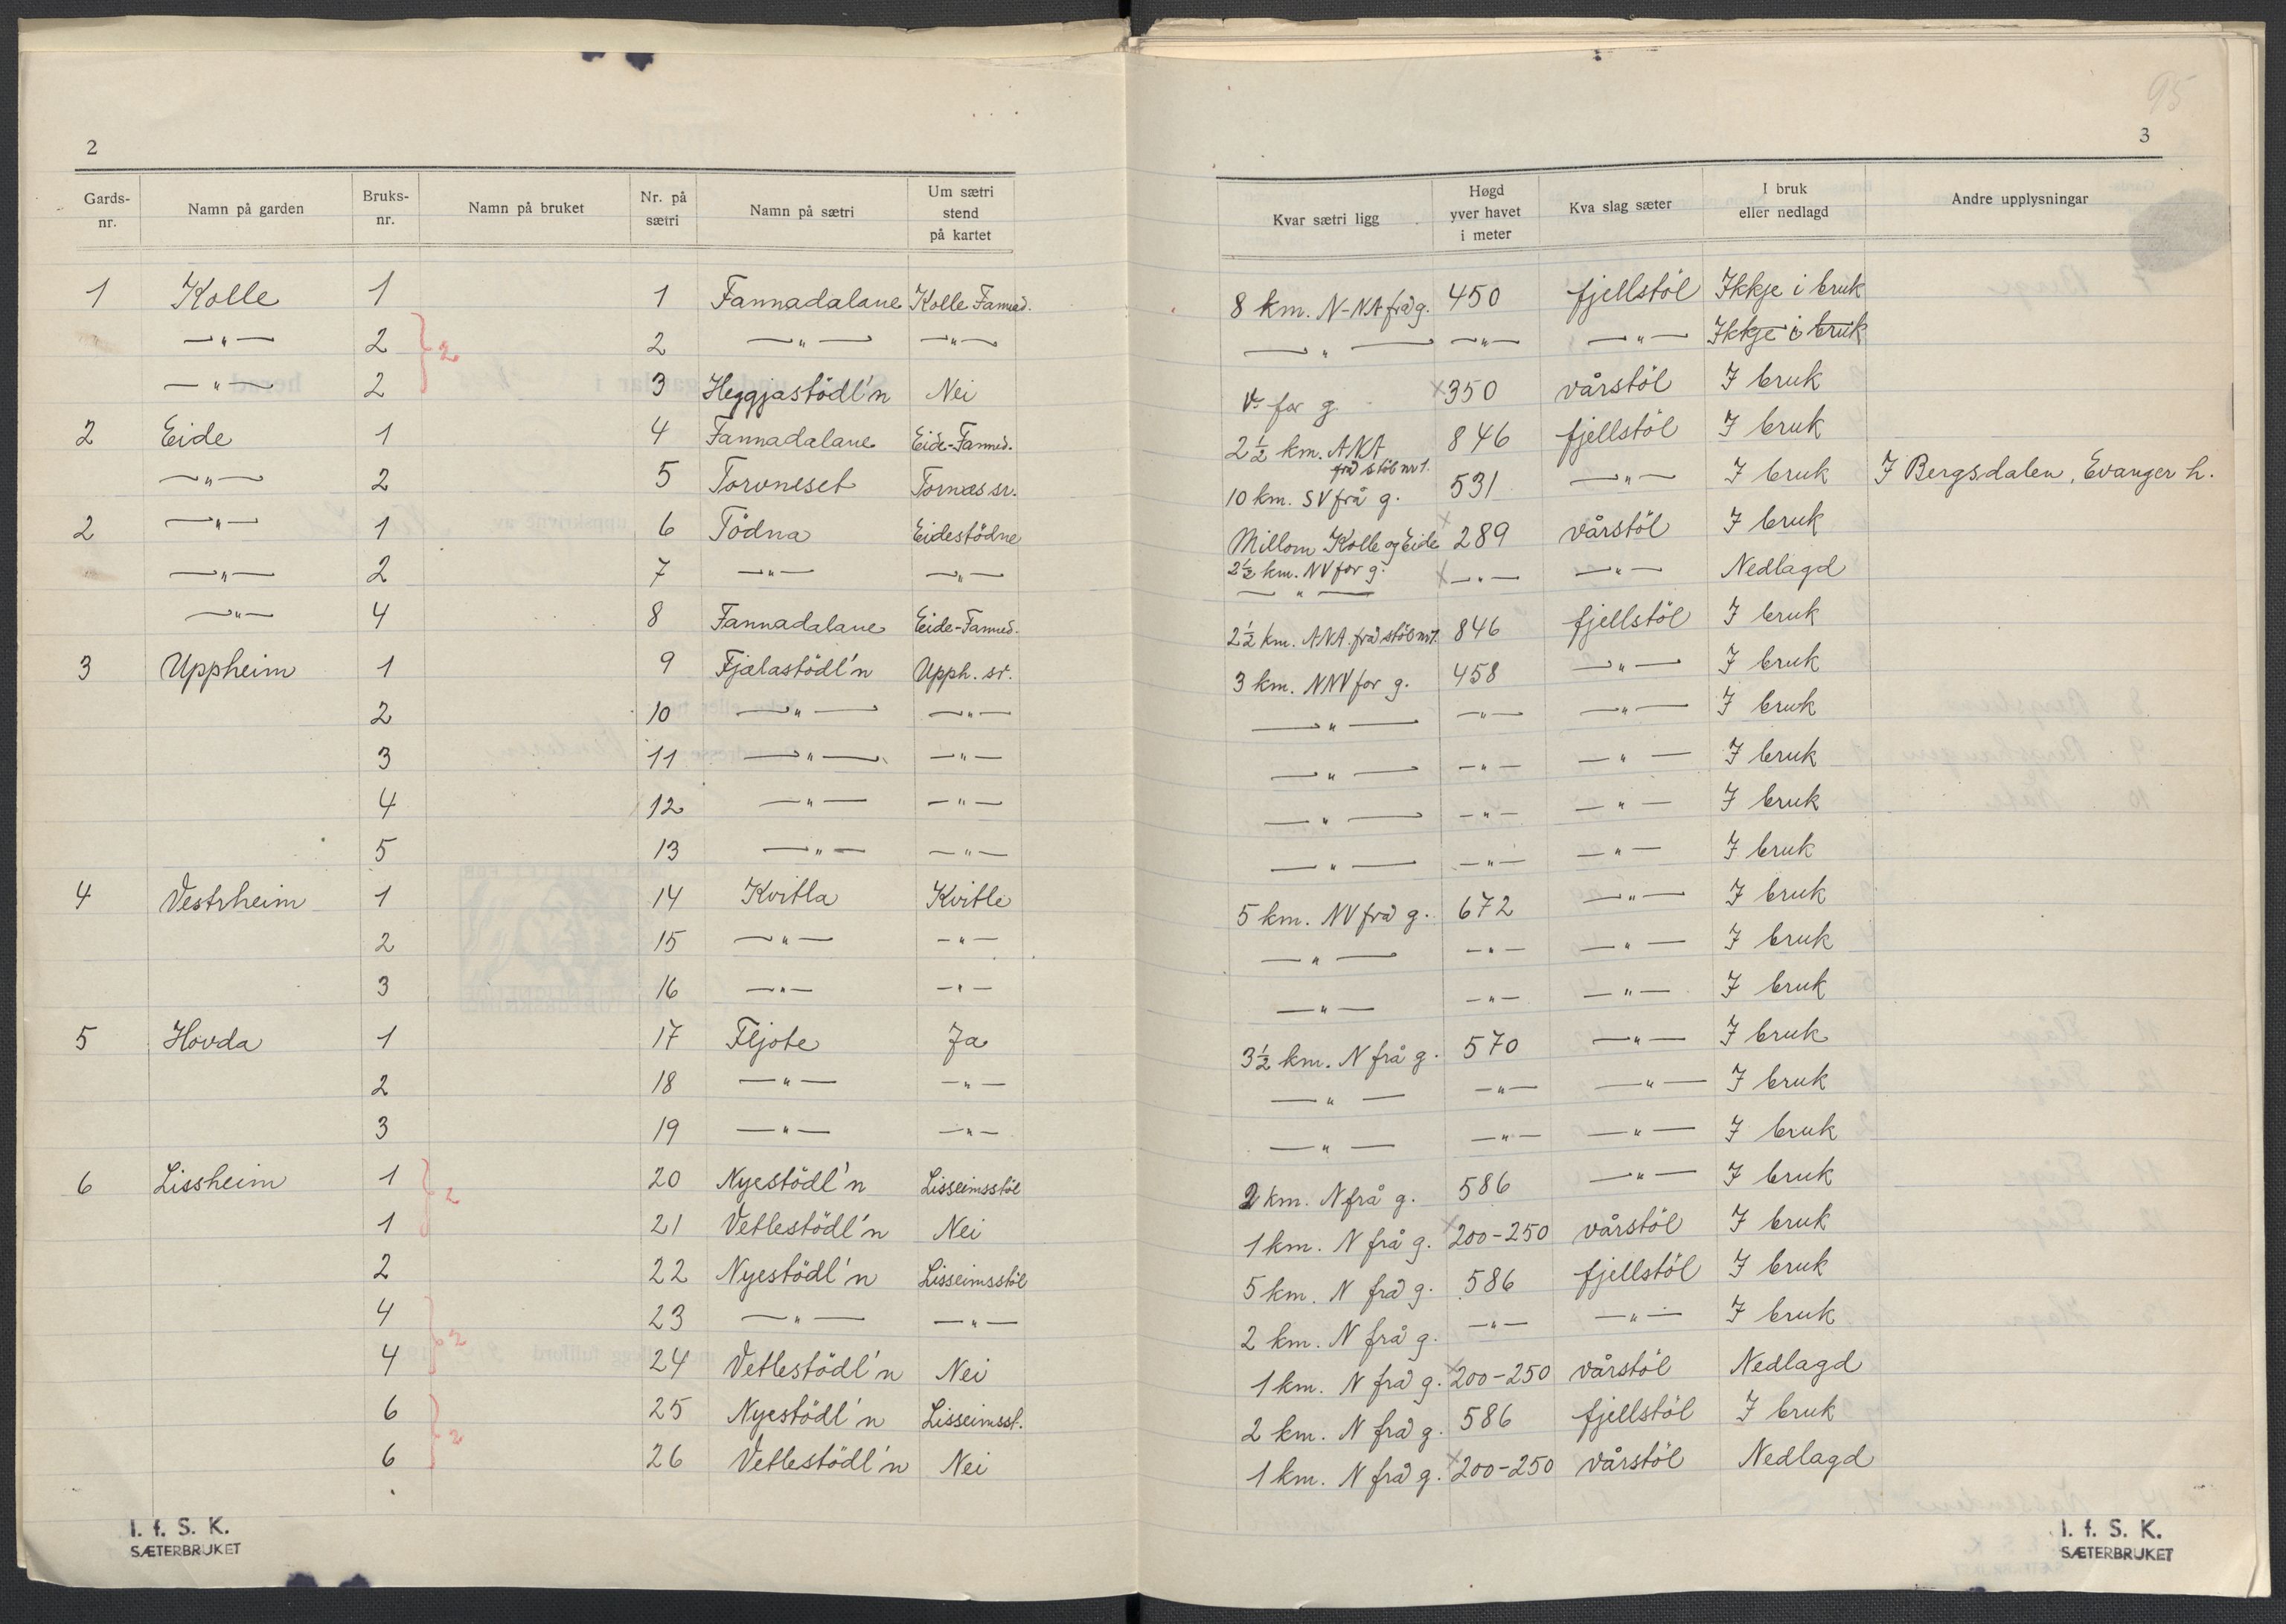 2
Gards-nr. Namn på garden Bruks-nr. Namn på bruket Nr. på sætri Namn på sætri Um sætri stend på kartet
1 Kolle 1 1 Fannadalane Kolle Fanned.
—"— 2 2 —"— —"—
—"— 2 3 Heggjastödl'n Nei
2
2 Eide 1 4 Fannadalane Eide-Fanned.
—"— 2 5 Torvneset Tornæs sr.
2 —"— 1 6 Tödna Eidestödne
—"— 2 7 —"— —"—
—"— 4 8 Fannadalane Eide-Fanned.
3 Uppheim 1 9 Fjælastödl'n Upph. sr.
2 10 —"— —"—
3 11 —"— —"—
4 12 —"— —"—
5 13 —"— —"—
4 Vestrheim 1 14 Kvitla Kvitle
2 15 —"— —"—
3 16 —"— —"—
5 Hovda 1 17 Fljote Ja
2 18 —"— —"—
3 19 —"— —"—
6 Lissheim 1 20 Nyestödl'n Lisseimsstöl
2
1 21 Vetlestödl'n Nei
2 22 Nyestödl'n Lisseimsstöl
4 23 —"— —"—
2
4 24 Vetlestödl'n Nei
6 25 Nyestödl'n Lisseimsst.
2
6 26 Vetlestödl'n Nei
I. f. S. K.
SÆTERBRUKET
95
3
Kvar sætri ligg Høgd yver havet i meter Kva slag sæter I bruk eller nedlagd Andre upplysningar
8 km. N-NA frå g. 450 fjellstöl Ikkje i bruk
—"— —"— —"— Ikkje i bruk
V. for g. x350 vårstöl I bruk
2½ km. ANA frå stöl nr 1. 846 fjellstöl I bruk
10 km. SV frå g. 531 —"— I bruk I Bergsdalen, Evanger h.
Millom Kolle og Eide x289 vårstöl I bruk
2½ km. NV for g.
—"— x—"— —"— Nedlagd
2½ km. ANA. frå stöl nr 1. 846 fjellstöl I bruk
3 km. NNV for g. 458 —"— I bruk
—"— —"— —"— I bruk
—"— —"— —"— I bruk
—"— —"— —"— I bruk
—"— —"— —"— I bruk
5 km. NV frå g. 672 —"— I bruk
—"— —"— —"— I bruk
—"— —"— —"— I bruk
3½ km. N frå g. 570 —"— I bruk
—"— —"— —"— I bruk
—"— —"— —"— I bruk
2 km. N frå g. 586 —"— I bruk
1 km. N frå g. x200-250 vårstöl I bruk
5 km. N frå g. 586 fjellstöl I bruk
2 km. N frå g. —"— —"— I bruk
1 km. N frå g. x200-250 vårstöl Nedlagd
2 km. N frå g. 586 fjellstöl I bruk
1 km. N frå g. x200-250 vårstöl Nedlagd
I. f. S. K.
SÆTERBRUKET